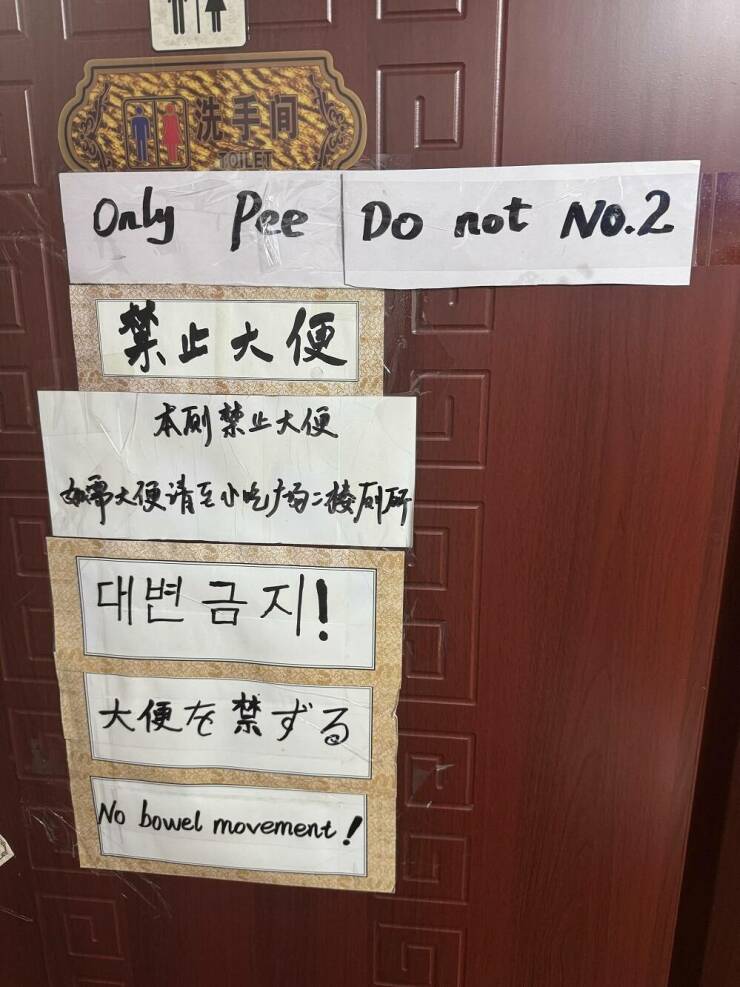 洗手间
TOILET
Only Pee Do not No.2
禁止大便
本厕禁止大便
如需大便请至小吃广场二楼厕所
대변금지!
大便を禁ずる
No bowel movement!